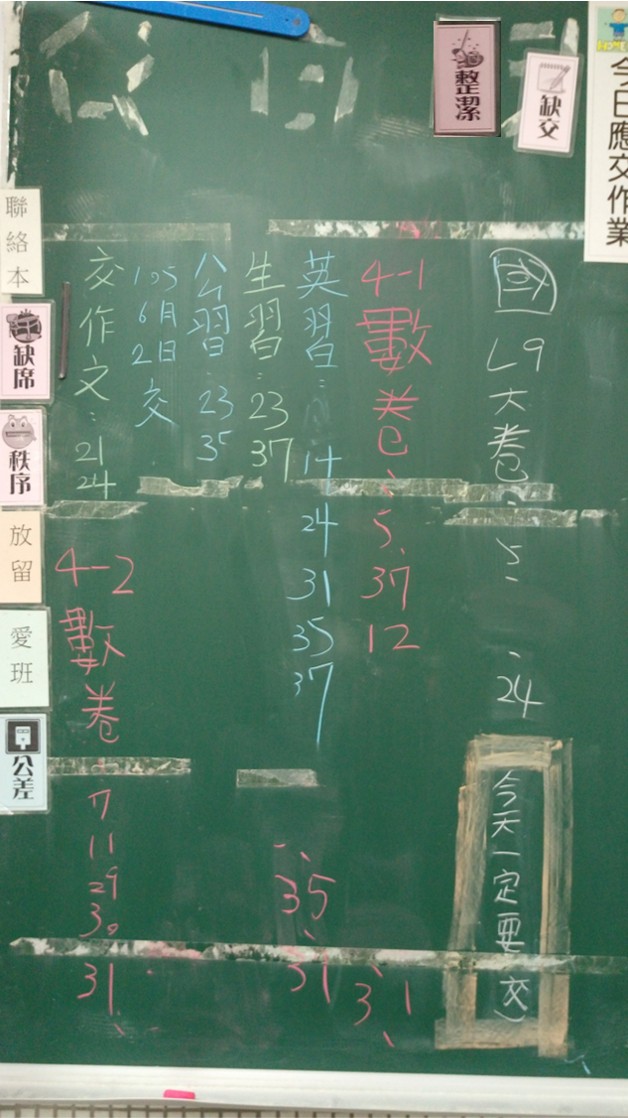 今日應交作業
缺交
整潔
國
L9大卷:5、
、24
今天一定要交)
4-1數卷:5、37 12
英習:14 24 31 35 37
生習:23 37
公習:23 35
105
6月
2日
交
交作文:21 24
4-2數卷:7 11 29 30 31
35、31
31
聯絡本
缺席
秩序
放留
愛班
公差